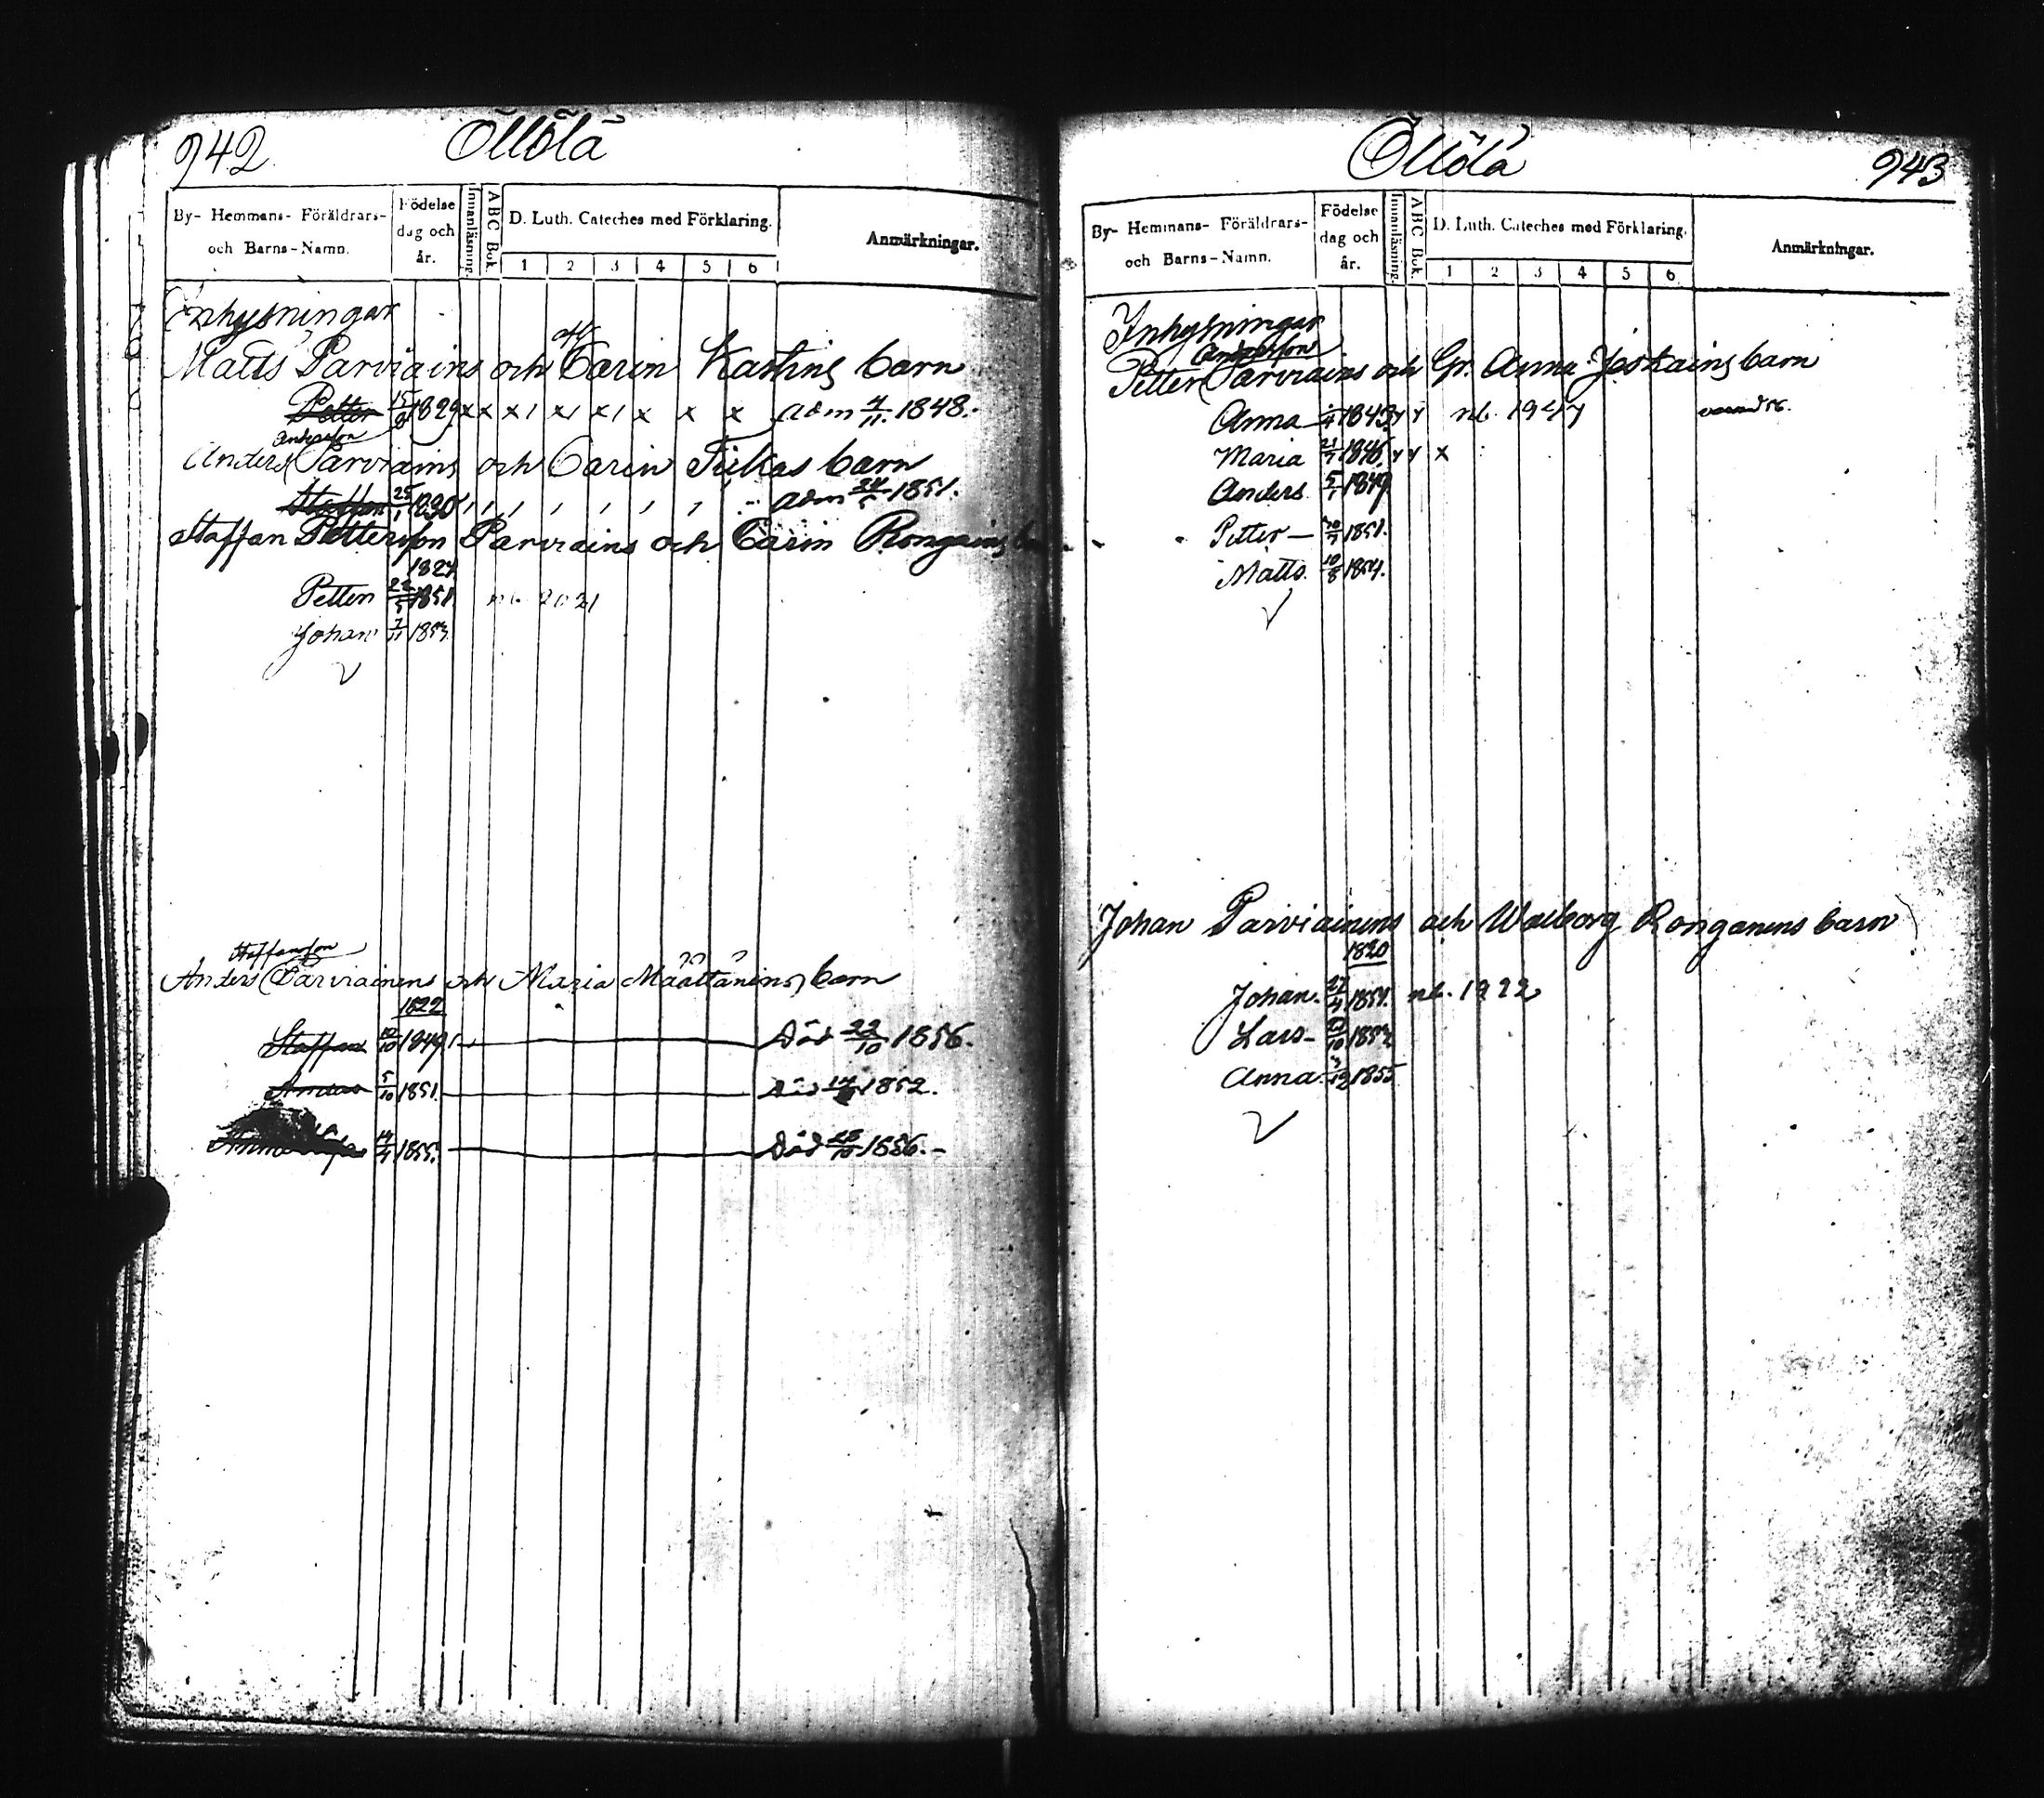 942 Öllölä
By- Hemmans- Föräldrars- och Barns-Namn. Födelse dag och år. Innanläsning. ABC Bok. D. Luth. Cateches med Förklaring. 1 2 3 4 5 6 Anmärkningar.
Inhysningar
Matts Parviains och Carin Kastins barn
Petter 15/9 1829 x x x1 x1 x1 x x x adm 4/11 1848.
Andersson
Anders Parviains och Carin Tiikas barn
Staffan 25/1 1830 adm 24/5 1851.
Staffan Pettersson Parviains och Carin Rongains
1824
Petter 22/5 1851 nb. 2021
Johan 7/11 1853
Staffansson
Anders Parviainens och Maria Määttänens barn
1822
Staffan 10/10 1849 Död 22/10 1856.
Anders 5/10 1851. Död 1852.
Anna 14/4 1855. Död 1856.
Öllölä 943
By- Hemmans- Föräldrars- och Barns-Namn. Födelse dag och år. Innanläsning. ABC Bok. D. Luth. Cateches med Förklaring. 1 2 3 4 5 6 Anmärkningar.
Inhysningar
Andersson
Petter Parviains och Gr. Anna Joskains barn
Anna 1843 nb. 1947
Maria 21/7 1846 x
Anders 5/1 1849
Petter 1851.
Matts 10/8 1854.
Johan Parviainens och Walborg Ronganens barn
1820
Johan 27/4 1851. nb. 1922
Lars 1853
Anna 3/12 1855